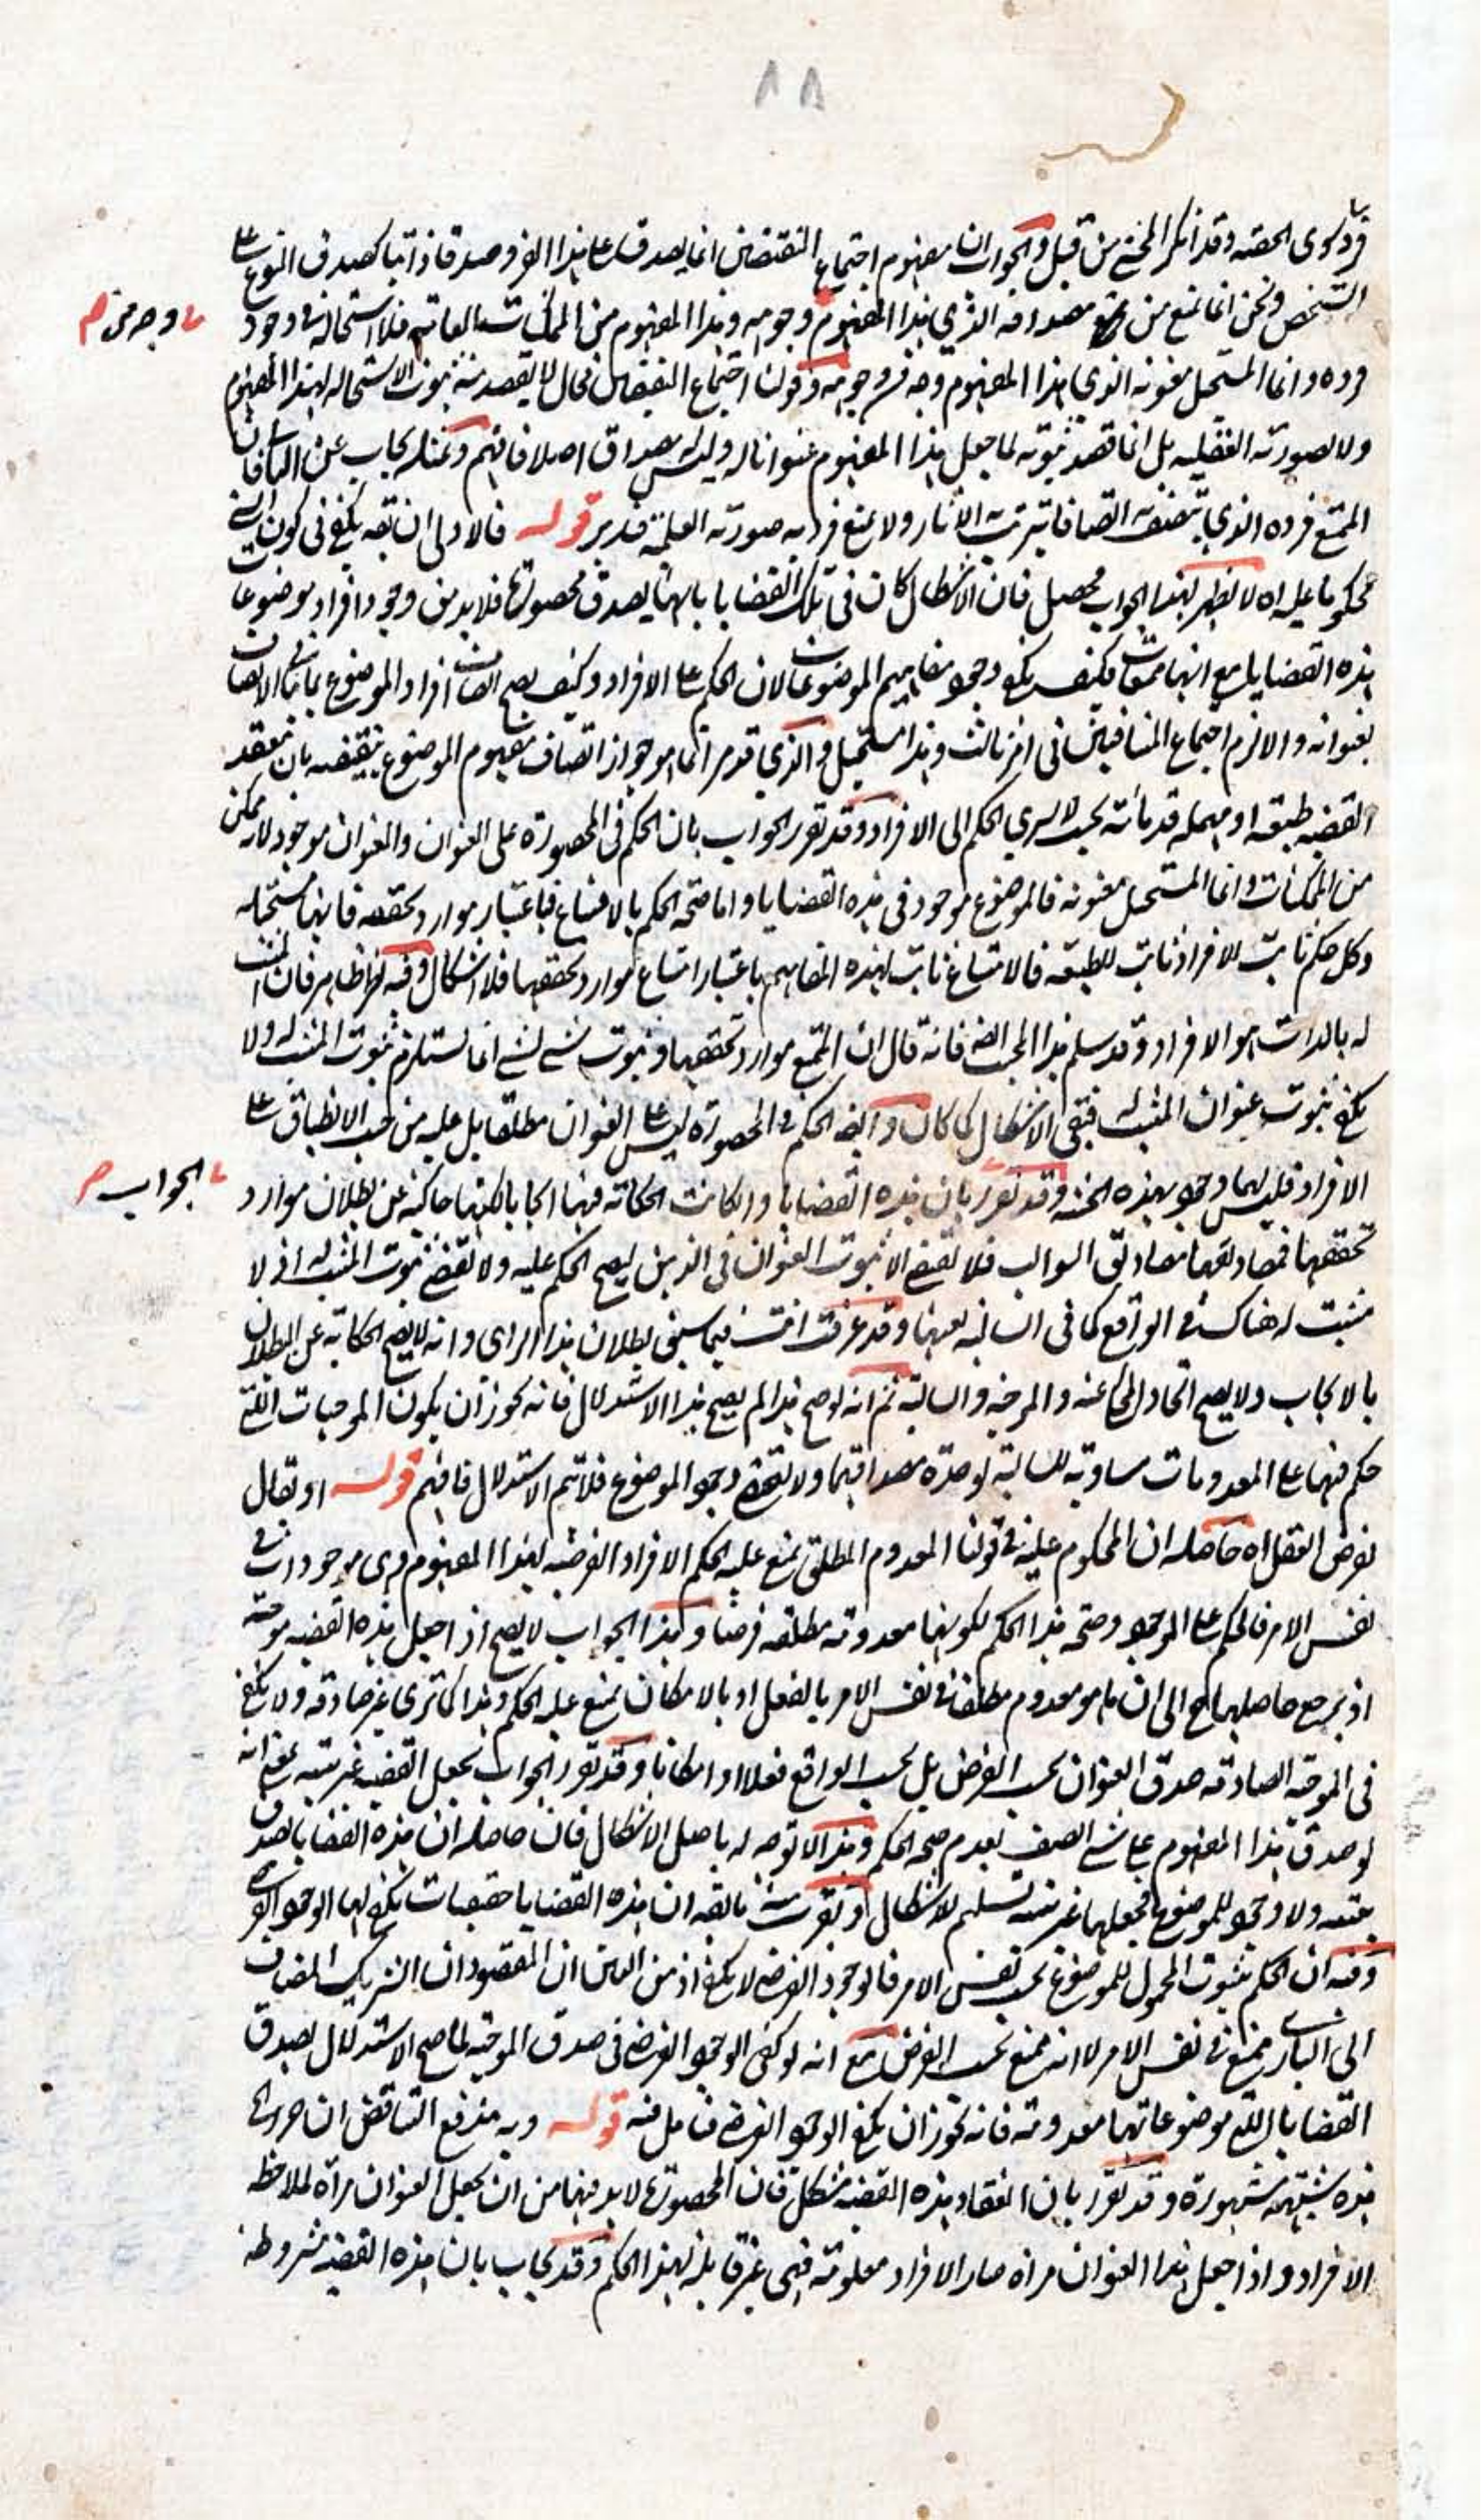 ٨٨
الحصه وقد انكر المخ من قبل والجواب ان مفهوم اجتماع النقيضين انما يصدق على هذا الفرد صدقا ذاتيا كصدق النوع على
الشخص ونحن انما نمنع من مصداقه الذي هذا المفهوم وجه من وجوهه وهذا المفهوم من الممكنات فلا استحالة في وجود
وجه من
فرده وانما المستحيل معنونه الذي هذا المفهوم وجه من وجوهه وقولنا اجتماع النقيضين محال لا يقصد منه ثبوت الاستحاله لهذا المفهوم
ولا لصورته العقليه بل انما قصد ثبوته لما جعل هذا المفهوم عنوانا له وليس له مصداق اصلا فافهم وبمثله يجاب عن
الممتنع فرده الذي يتصف اتصافا يترتب الآثار ولا يمنع فرديه صورته العلمية فتدبر قوله فالاولى ان يقه يكفى فى كون الشي
محكوما عليه اه لا يظهر لهذا الجواب محصل فان الاشكال كان فى تلك القضايا بانها يصدق محصورة فلا بد من وجود افراد موضوعات
هذه القضايا مع انها ممتنعات فكيف يكفي وجود مفاهيم الموضوعات لان الحكم على الافراد وكيف يصح اتصاف افراد الموضوع بما ينافى الاتصاف
بعنوانه والا لزم اجتماع المتنافيين فى امر ثالث وهذا مستحيل والذي قد مر انما هو جواز اتصاف مفهوم الموضوع بنقيضه بان تنعقد
القضيه طبيعيه او مهمله قدمائية بحيث لا يسري الحكم الى الافراد وقد تقرر الجواب بان الحكم فى المحصورة على العنوان والعنوان موجود لانه ممكن
من الممكنات وانما المستحيل معنونه فالموضوع موجود فى هذه القضايا واما صحة الحكم بالامتناع فباعتبار موارد تحققه فانها مستحيله
وكل حكم ثابت للافراد ثابت للطبيعه فالامتناع ثابت لهذه المفاهيم باعتبار امتناع موارد تحققها فلا اشكال وفيه نظر ظاهر فان المثبت
له بالذات هو الافراد وقد سلم هذا المجيب ايضا فانه قال ان الممتنع موارد تحققها وثبوت شي لشي انما يستلزم ثبوت المثبت له ولا
يكفي ثبوت عنوان المثبت له فبقى الاشكال كما كان وايضا الحكم في المحصورة ليس على العنوان مطلقا بل عليه من حيث الانطباق على
الافراد فليس لها وجود بهذه الحيثية وقد تقرر بان هذه القضايا وان كانت الحكاية فيها ايجابا لكنها حاكية عن بطلان موارد
الجواب
تحققها فمصاديقها مصاديق السوالب فلا تقتضي الا ثبوت العنوان فى الذهن ليصح الحكم عليه ولا تقتضي ثبوت المثبت له اذ لا
مثبت له هناك في الواقع كما فى السالبة بعينها وقد عرفت انت فيما سبق بطلان هذا الراى وانه لا يصح الحكاية عن البطلان
بالايجاب ولا يصح اتحاد المحكي عنه والموجبة والسالبة ثم انه لو صح هذا لم يصح هذا الاستدلال فانه يجوز ان يكون الموجبات التي
حكم فيها على المعدومات مساوية للسالبة لوحدة مصداقيهما ولا تقتضي وجود الموضوع فلا يتم الاستدلال فافهم قوله او يقال
بفرض العقل اه حاصله ان المحكوم عليه في قولنا المعدوم المطلق يمتنع عليه الحكم الافراد الفرضيه لهذا المفهوم وهى موجودات في
نفس الامر فالحكم على الموجود وصحة هذا الحكم لكونها معدومة مطلقه فرضا وهذا الجواب لا يصح اذا جعل هذه القضيه موجبه
اذ يرجع حاصلها الى ان ما هو معدوم مطلقا في نفس الامر بالفعل او بالامكان يمتنع عليه الحكم وهذا كما ترى غير صادقه ولا يكفي
فى الموجبة الصادقه صدق العنوان بحسب الفرض بل بحسب الواقع فعلا او امكانا وقد تقرر الجواب بجعل القضيه غير بتيه على معنى انه
لو صدق هذا المفهوم على شي اتصف بعدم صحة الحكم وهذا لا توجه له باصل الاشكال فان حاصله ان هذه القضايا تصدق
بتيه ولا وجود للموضوع فجعلها غير بتيه تسليم للاشكال ان هذه القضايا حقيقيات يكفي لها الوجود الفرضي
وفيه ان الحكم بثبوت المحمول للموضوع بحسب نفس الامر فالوجود الفرضي لا يكفي اذ من البين ان المقصود ان الشريك المضاف
الى الباري ممتنع في نفس الامر لا انه ممتنع بحسب الفرض مع انه لو كفى الوجود الفرضي فى صدق الموجبة لما صح الاستدلال بصدق
القضايا التي موضوعاتها معدومة فانه يجوز ان يكفي الوجود الفرضي فتامل فيه قوله وبه يندفع التناقض
هذه شبهة مشهورة وقد تقرر بان انعقاد هذه القضية مشكل فان المحصورة لا بد فيها من ان يجعل العنوان مرآة لملاحظة
الافراد واذا جعل هذا العنوان مرآة صار الافراد معلومة فهى غير قابلة لهذا الحكم وقد يجاب بان هذه القضيه مشروطه